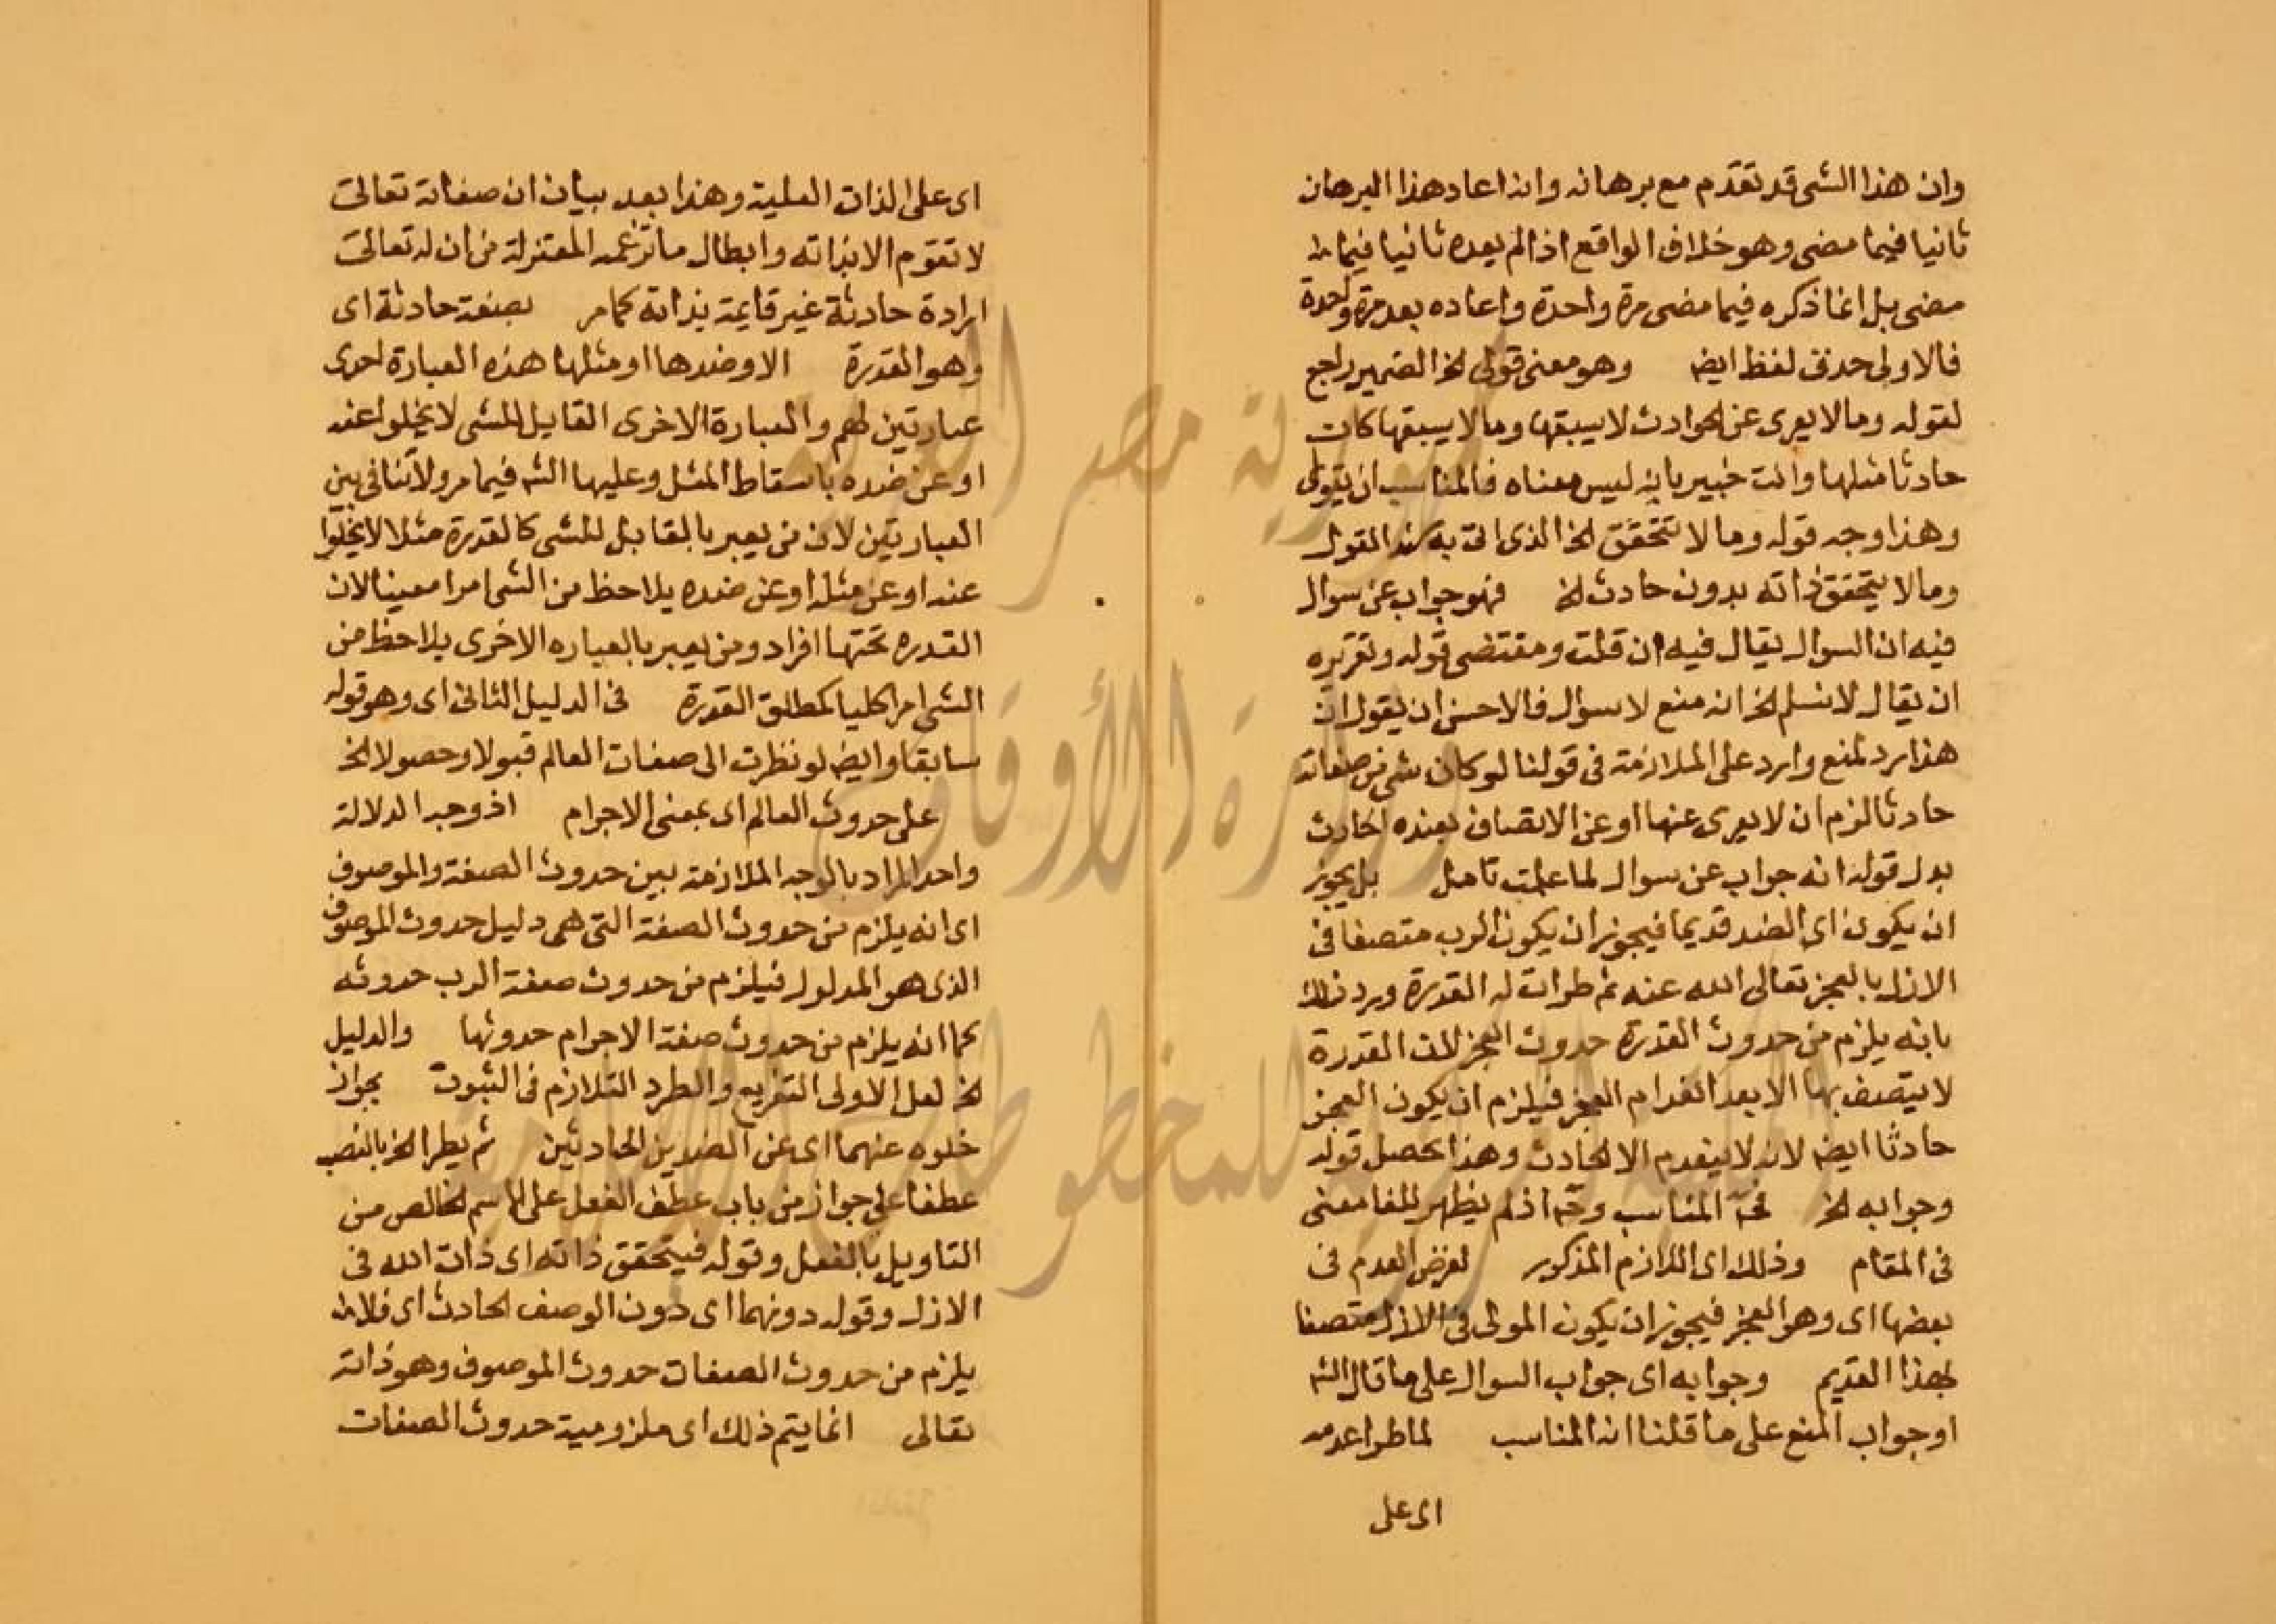 وان هذا الشى قد تقدم مع برهانه وانه اعاد هذا البرهان
ثانيا فيما مضى وهو خلاف الواقع اذ لم يعده ثانيا فيما
مضى بل انما ذكره فيما مضى مرة واحدة واعاده بعد مرة واحدة
فالاولى حذف لفظ ايض وهو معنى قولى الخ الضمير راجع
لقوله وما لا يعرى عن الحوادث لا يسبقها وما لا يسبقها كان
حادثا مثلها وانت خبير بانه ليس معناه فالمناسب ان يقول
وهذا وجه قوله وما لا تتحقق الخ الذى اتى به المقول
وما لا يتحقق ذاته بدون حادث الخ فهو جواب عن سوال
فيه ان السوال يقال فيه ان قلت ومقتضى قوله وتقريره
ان يقال لا نسلم الخ انه منع لا سوال فالاحسن ان يقول ان
هذا يرد لمنع وارد على الملازمة فى قولنا لو كان شى من صفاته
حادثا لزم ان لا يعرى عنها او عن الاتصاف بضده الحادث
بدل قوله انه جواب عن سوال لما علمت تامل بل يجوز
ان يكون اى الضد قديما فيجوز ان يكون الرب متصفا فى
الازل بالعجز تعالى الله عنه ثم طرات له القدرة ويرد ذلك
بانه يلزم من حدوث القدرة حدوث العجز لان القدرة
لا يتصف بها الا بعد انعدام العجز فيلزم ان يكون العجز
حادثا ايض لانه لا ينعدم الا الحادث وهذا محصل قوله
وجوابه الخ فحـ المناسب وحـ اذ لم يظهر للفا معنى
فى المقام وذلك اى اللازم المذكور لفرض العدم فى
بعضها اى وهو العجز فيجوز ان يكون المولى فى الازل متصفا
بهذا القديم وجوابه اى جواب السوال على ما قال الشـ
او جواب المنع على ما قلنا انه المناسب لما طرا عدمه
اى على
اى على الذات العلية وهذا بعد بيان ان صفاته تعالى
لا تقوم الا بذاته وابطال ما تزعمه المعتزلة من ان له تعالى
ارادة حادثة غير قايمة بذاته كما مر بصفة حادثة اى
وهو القدرة الا وضدها او مثلها هذه العبارة احدى
عبارتين لهم والعبارة الاخرى القايل للشى لا يخلوا عنه
او عن ضده باسقاط المثل وعليها الشـ فيما مر ولا تنافى بين
العبارتين لان من يعبر بالقابل للشى كالقدرة مثلا لا يخلوا
عنه او عن مثله او عن ضده يلاحظ من الشى امرا معينا لان
القدره تحتها افراد ومن يعبر بالعباره الاخرى يلاحظ من
الشى امرا كليا كمطلق القدرة فى الدليل الثانى اى وهو قوله
سابقا وايض لو نظرت الى صفات العالم قبولا وحصولا الخ
على حدوث العالم اى بمعنى الاجرام اذ وجه الدلالة
واحد المراد بالوجه الملازمة بين حدوث الصفة والموصوف
اى انه يلزم من حدوث الصفة التى هى دليل حدوث الموصوف
الذى هو المدلول فيلزم من حدوث صفة الرب حدوثه
كما انه يلزم من حدوث صفة الاجرام حدوثها والدليل
الخ لعل الاولى التفريع والطرد التلازم فى الثبوت بجواز
خلوه عنهما اى عن الضدين الحادثين ثم يطرا الخ بالنصب
عطفا على جواز من باب عطف الفعل على الاسم الخالص من
التاويل بالفعل وقوله فيتحقق ذاته اى ذات الله فى
الازل وقوله دونهما اى دون الوصف الحادث اى فلا
يلزم من حدوث الصفات حدوث الموصوف وهو ذاته
تعالى انما يتم ذلك اى ملزومية حدوث الصفات
جمهورية مصر العربية
وزارة الأوقاف
المكتبة المركزية للمخطوطات الإسلامية